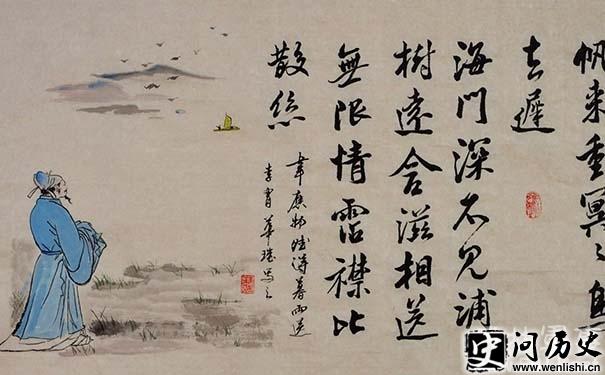 帆来重冥〻鳥
去遲
海門深不見浦
樹遠含滋相送
無限情霑襟比
散絲
韋應物賦得暮雨送
李胄 華
问历史
www.wenlishi.cn